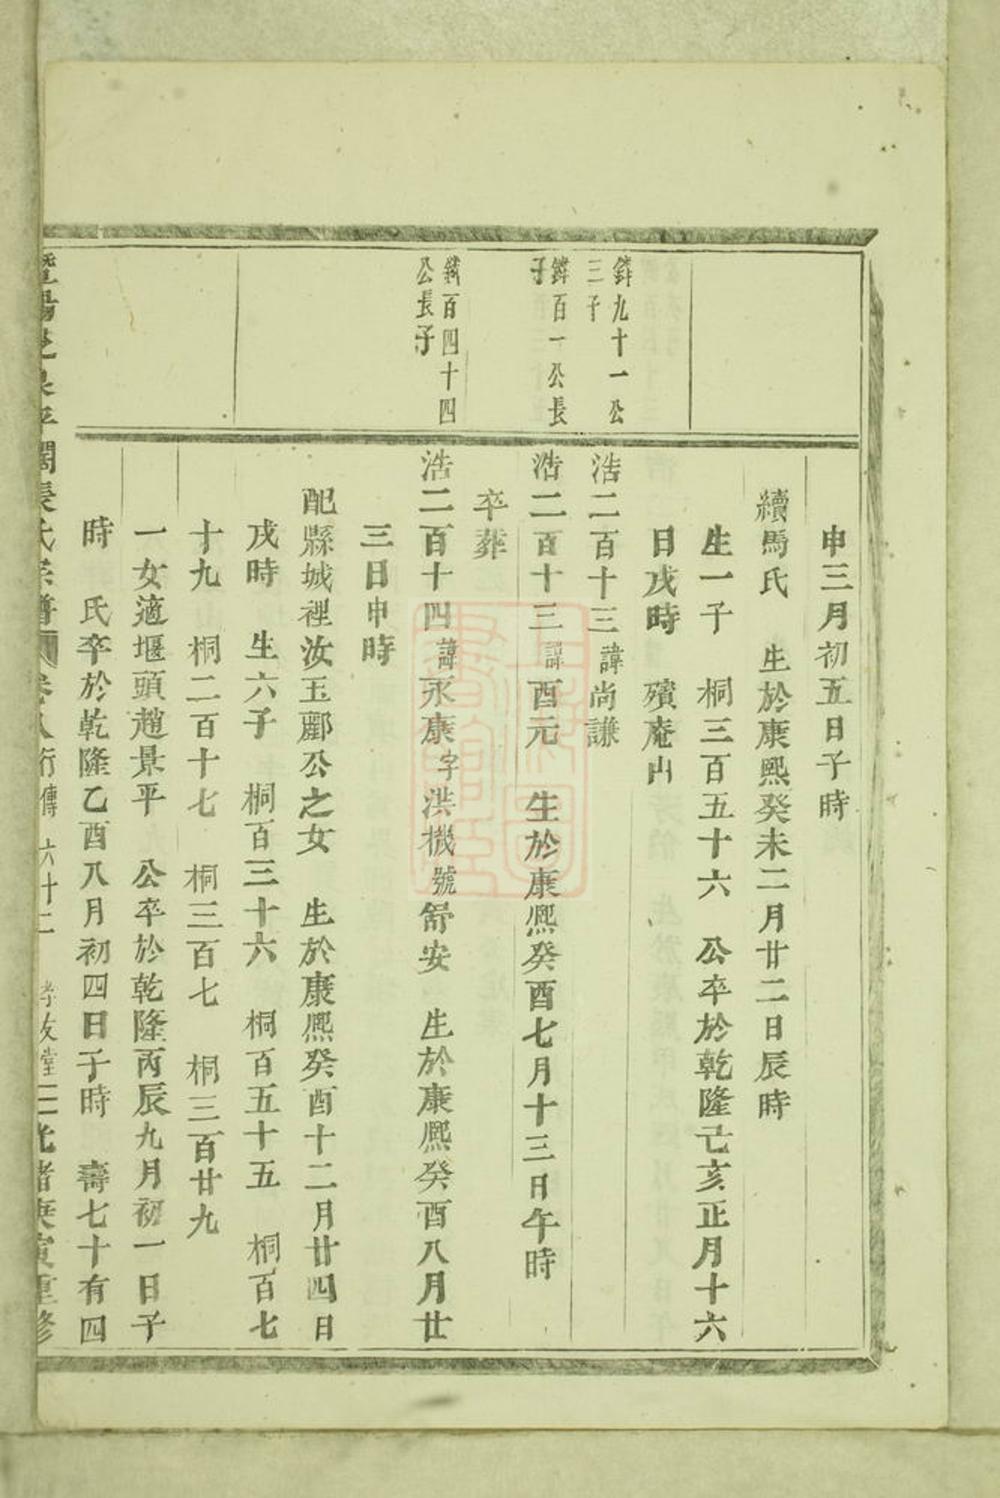 申三月初五日子時
續馬氏　生於康熙癸未二月廿二日辰時
生一子　桐三百五十六　公卒於乾隆己亥正月十六
日戌時　殯庵山
鏲九十一公
三子
浩二百十三諱尚謙
鏲百一公長
子
浩二百十三諱酉元　生於康熙癸酉七月十三日午時
卒葬
百四十四
公長子
浩二百十四諱永康字洪機號舒安　生於康熙癸酉八月廿
三日申時
配縣城裡汝玉酈公之女　生於康熙癸酉十二月廿四日
戌時　生六子　桐百三十六　桐百五十五　桐百七
十九　桐二百十七　桐三百七　桐三百廿九
一女適堰頭趙景平　公卒於乾隆丙辰九月初一日子
時　氏卒於乾隆乙酉八月初四日子時　壽七十有四
暨陽芝泉平闊長氏宗譜　卷八行傳　六十二　孝友堂　光緒庚寅重修